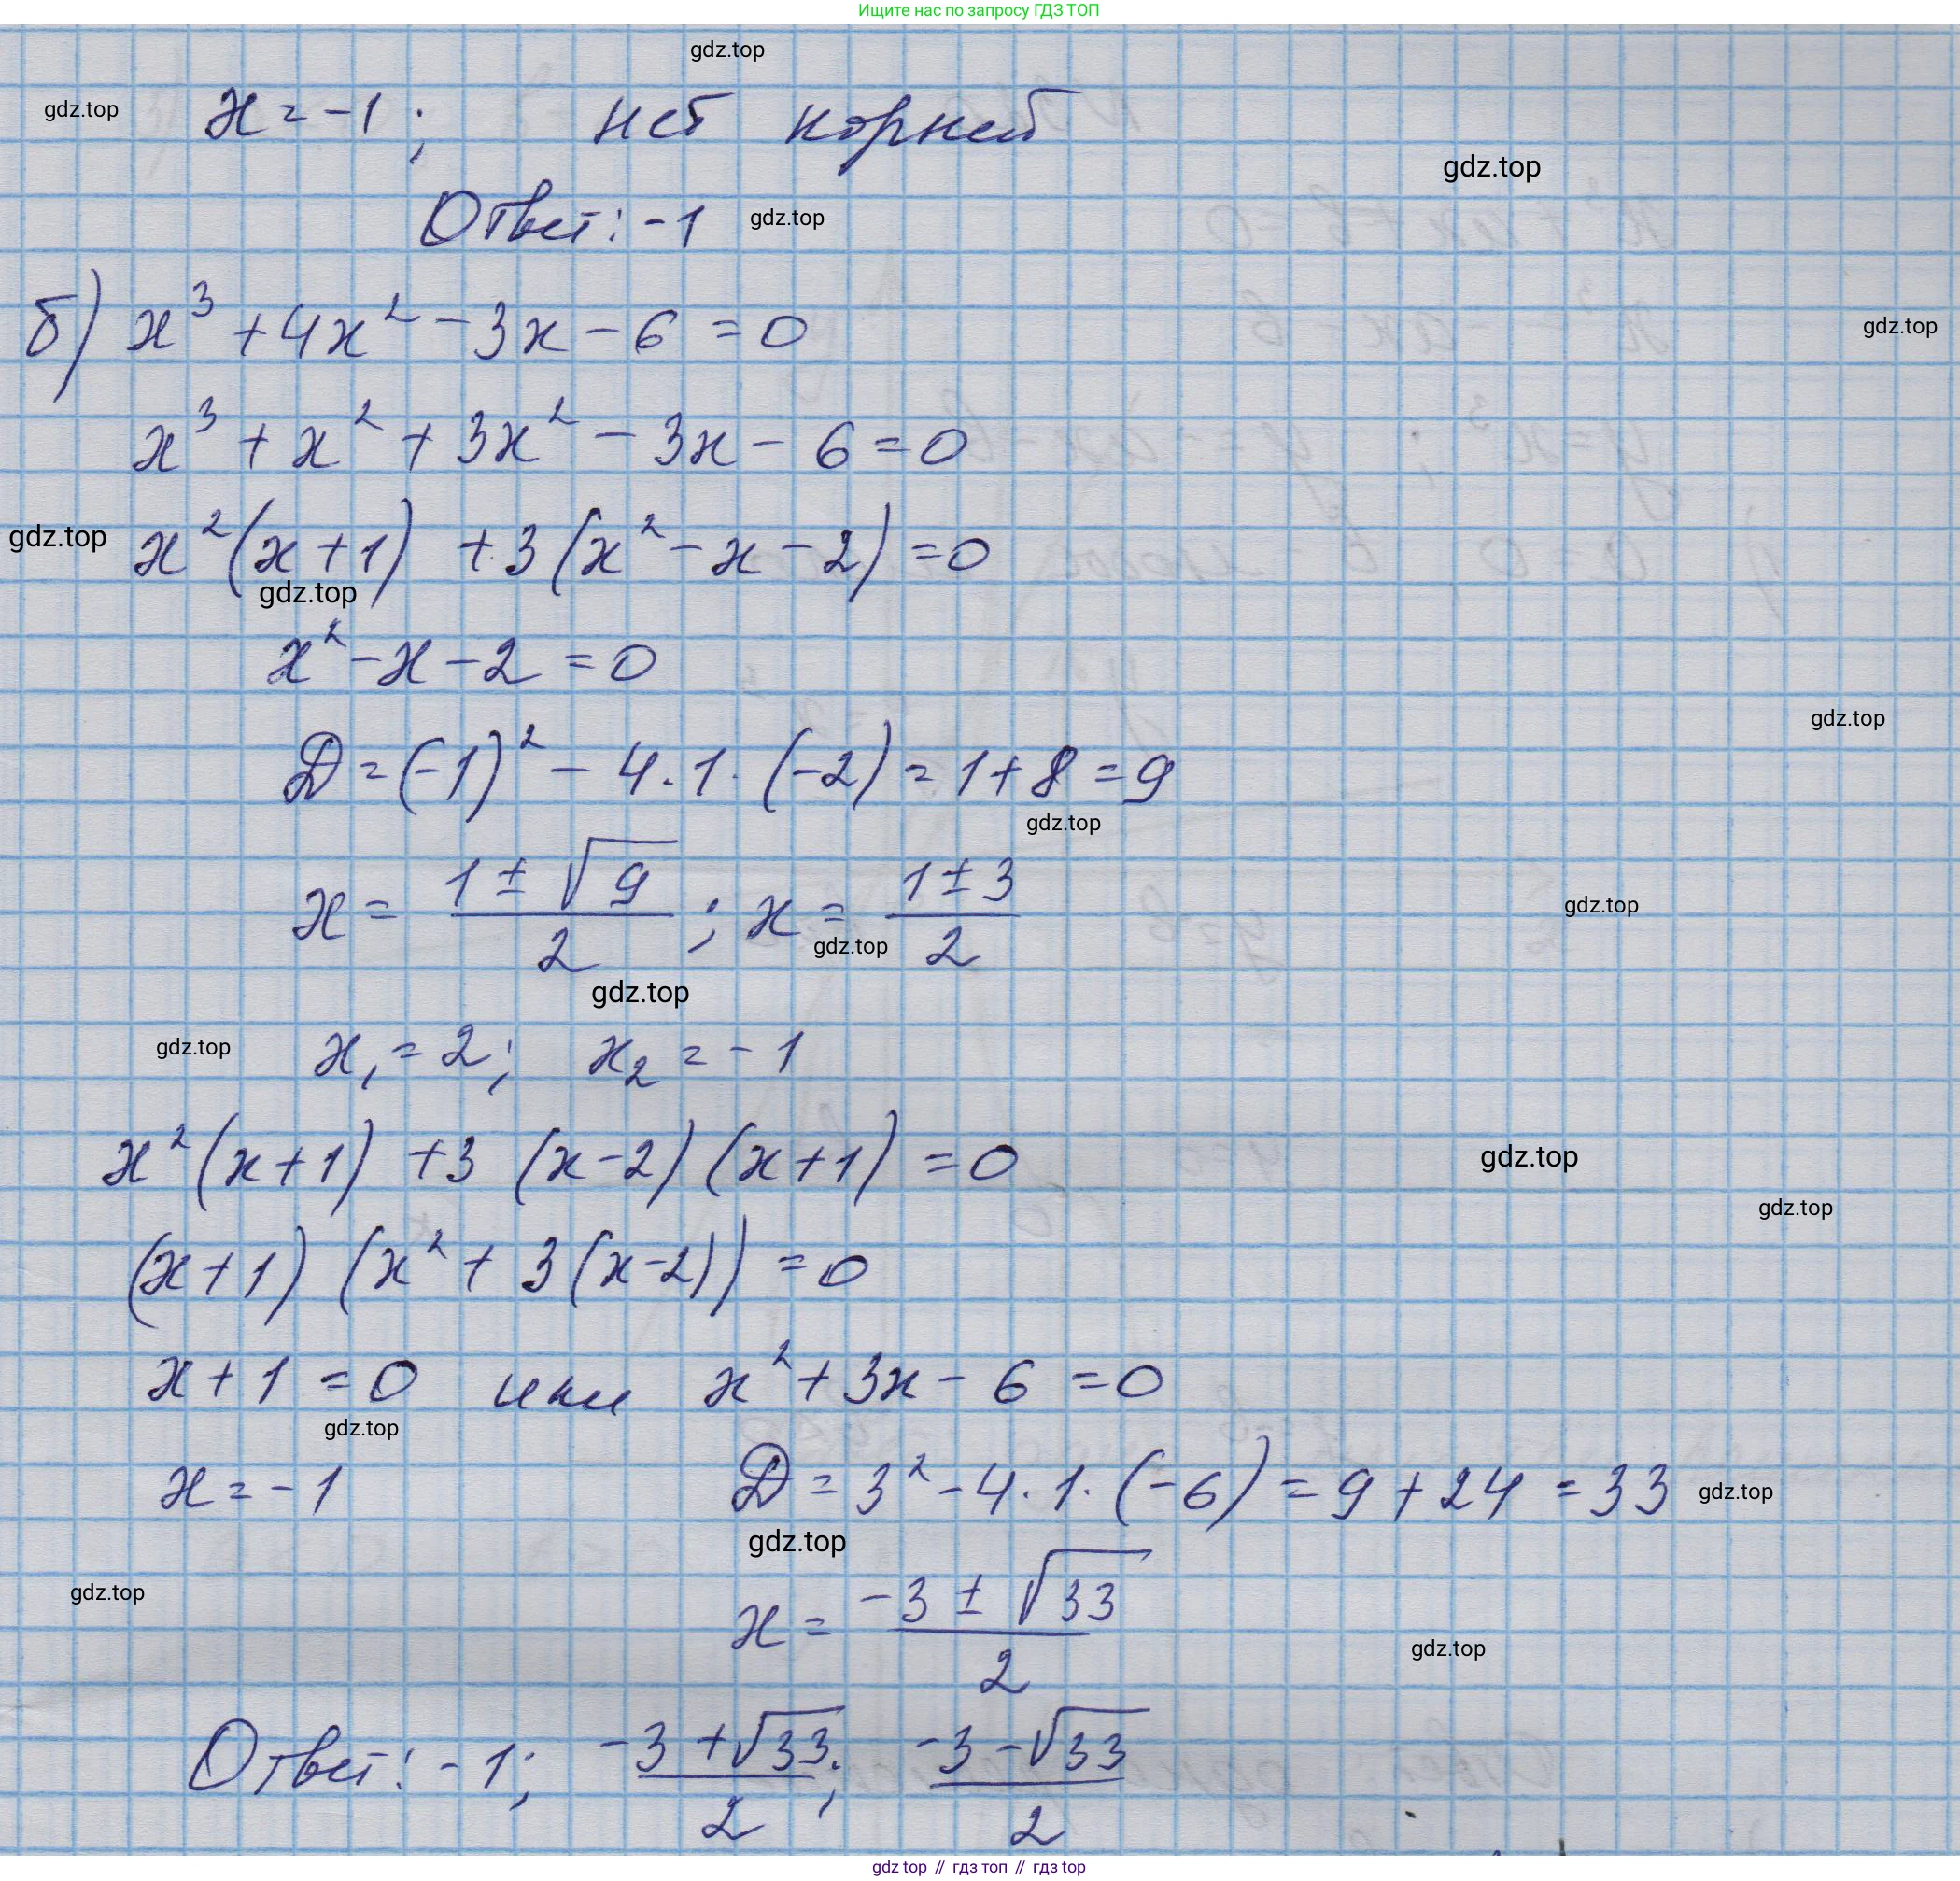 Ищите нас по запросу ГДЗ ТОП
gdz.top
gdz.top
x = -1 ; нет корней
gdz.top
Ответ: -1
gdz.top
б) x³ + 4x² - 3x - 6 = 0
gdz.top
x³ + x² + 3x² - 3x - 6 = 0
gdz.top
x²(x + 1) + 3(x² - x - 2) = 0
gdz.top
x² - x - 2 = 0
gdz.top
D = (-1)² - 4 · 1 · (-2) = 1 + 8 = 9
gdz.top
x = (1 ± √9)/2 ; x = (1 ± 3)/2
gdz.top
gdz.top
gdz.top
gdz.top
x₁ = 2; x₂ = -1
x²(x + 1) + 3 (x - 2) (x + 1) = 0
gdz.top
gdz.top
(x + 1) (x² + 3(x - 2)) = 0
x + 1 = 0 или x² + 3x - 6 = 0
gdz.top
x = -1 D = 3² - 4 · 1 · (-6) = 9 + 24 = 33
gdz.top
gdz.top
gdz.top
x = (-3 ± √33)/2
gdz.top
Ответ: -1; (-3 + √33)/2 ; (-3 - √33)/2
gdz top // гдз топ // гдз top